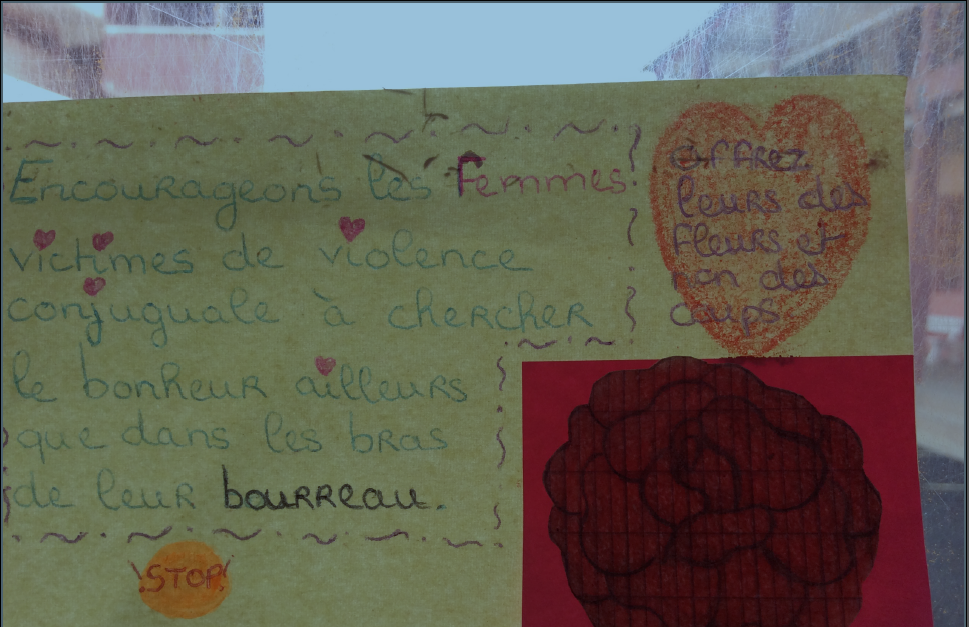 Encourageons les Femmes
victimes de violence
conjuguale à chercher
le bonheur ailleurs
que dans les bras
de leur bourreau.
offrez
leurs des
fleurs et
non des
coups
!STOP!